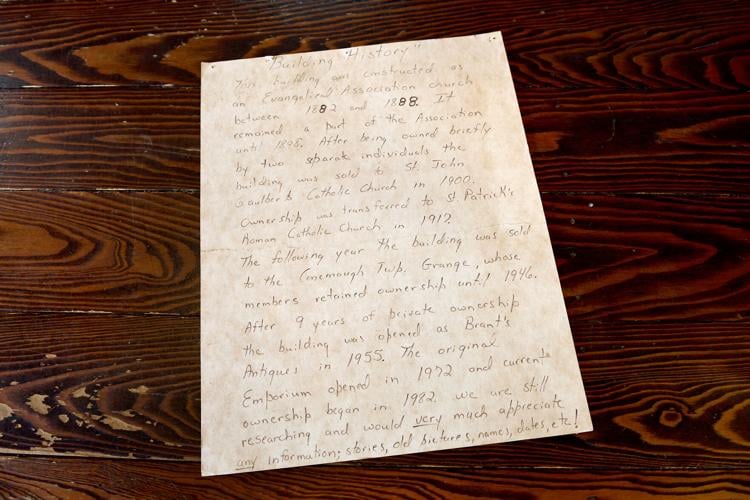 "Building History"
This building was constructed as
an Evangelical Association church
between 1882 and 1888. It
remained a part of the Association
until 1898. After being owned briefly
by two separate individuals the
building was sold to St. John
Gaulberts Catholic Church in 1900.
Ownership was transferred to St. Patrick's
Roman Catholic Church in 1912.
The following year the building was sold
to the Conemaugh Twp. Grange, whose
members retained ownership until 1946.
After 9 years of private ownership
the building was opened as Brant's
Antiques in 1955. The original
Emporium opened in 1972 and current
ownership began in 1982. we are still
researching and would very much appreciate
any information; stories, old pictures, names, dates, etc!